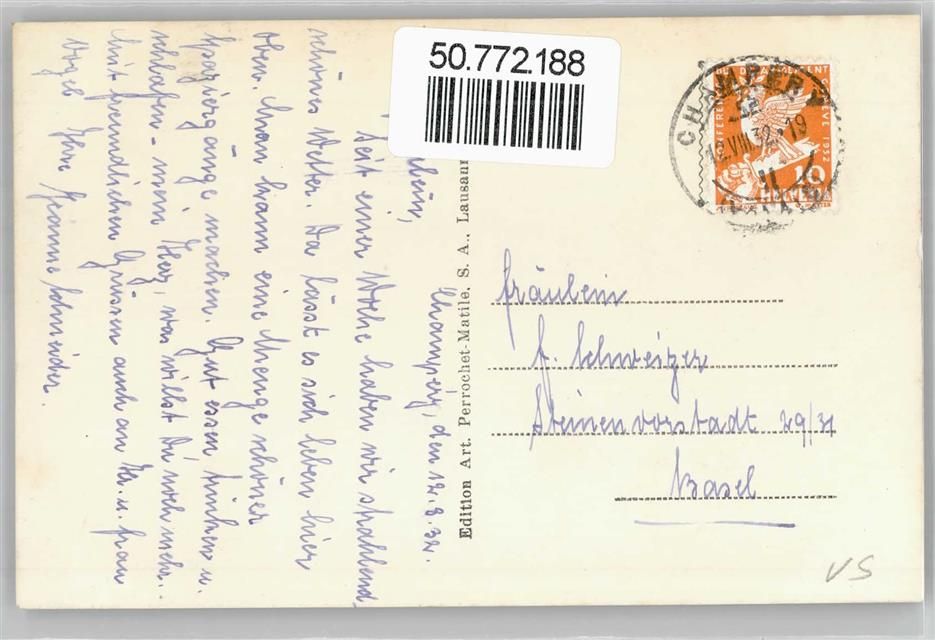 50.772.188
Champéry, den 12. 8. 32.
Seit einer Woche haben wir strahlend
schönes Wetter. Da lässt es sich leben hier
oben. Man kann eine Menge schöner
Spaziergänge machen. Gut essen u.
schlafen - mein Herz, was willst Du noch mehr.
Mit freundlichen Grüssen auch an Hr. u. Frau
Vogel Ihre Schneider.
Edition Art. Perrochet-Matile, S. A., Lausan
CHAMPÉRY
12.VIII.32.-19
CONFERENCE DU DESARMEMENT
GENEVE 1932
10
HELVETIA
Fräulein
F. Schweizer
Steinenvorstadt 29/31
Basel
VS